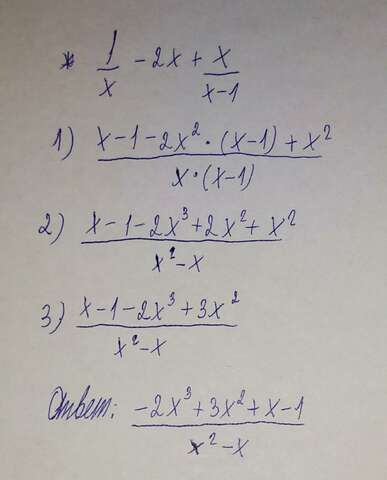 * 1/x - 2x + x/(x-1)
1) (x-1-2x²·(x-1)+x²)/(x·(x-1))
2) (x-1-2x³+2x²+x²)/(x²-x)
3) (x-1-2x³+3x²)/(x²-x)
Ответ: (-2x³+3x²+x-1)/(x²-x)